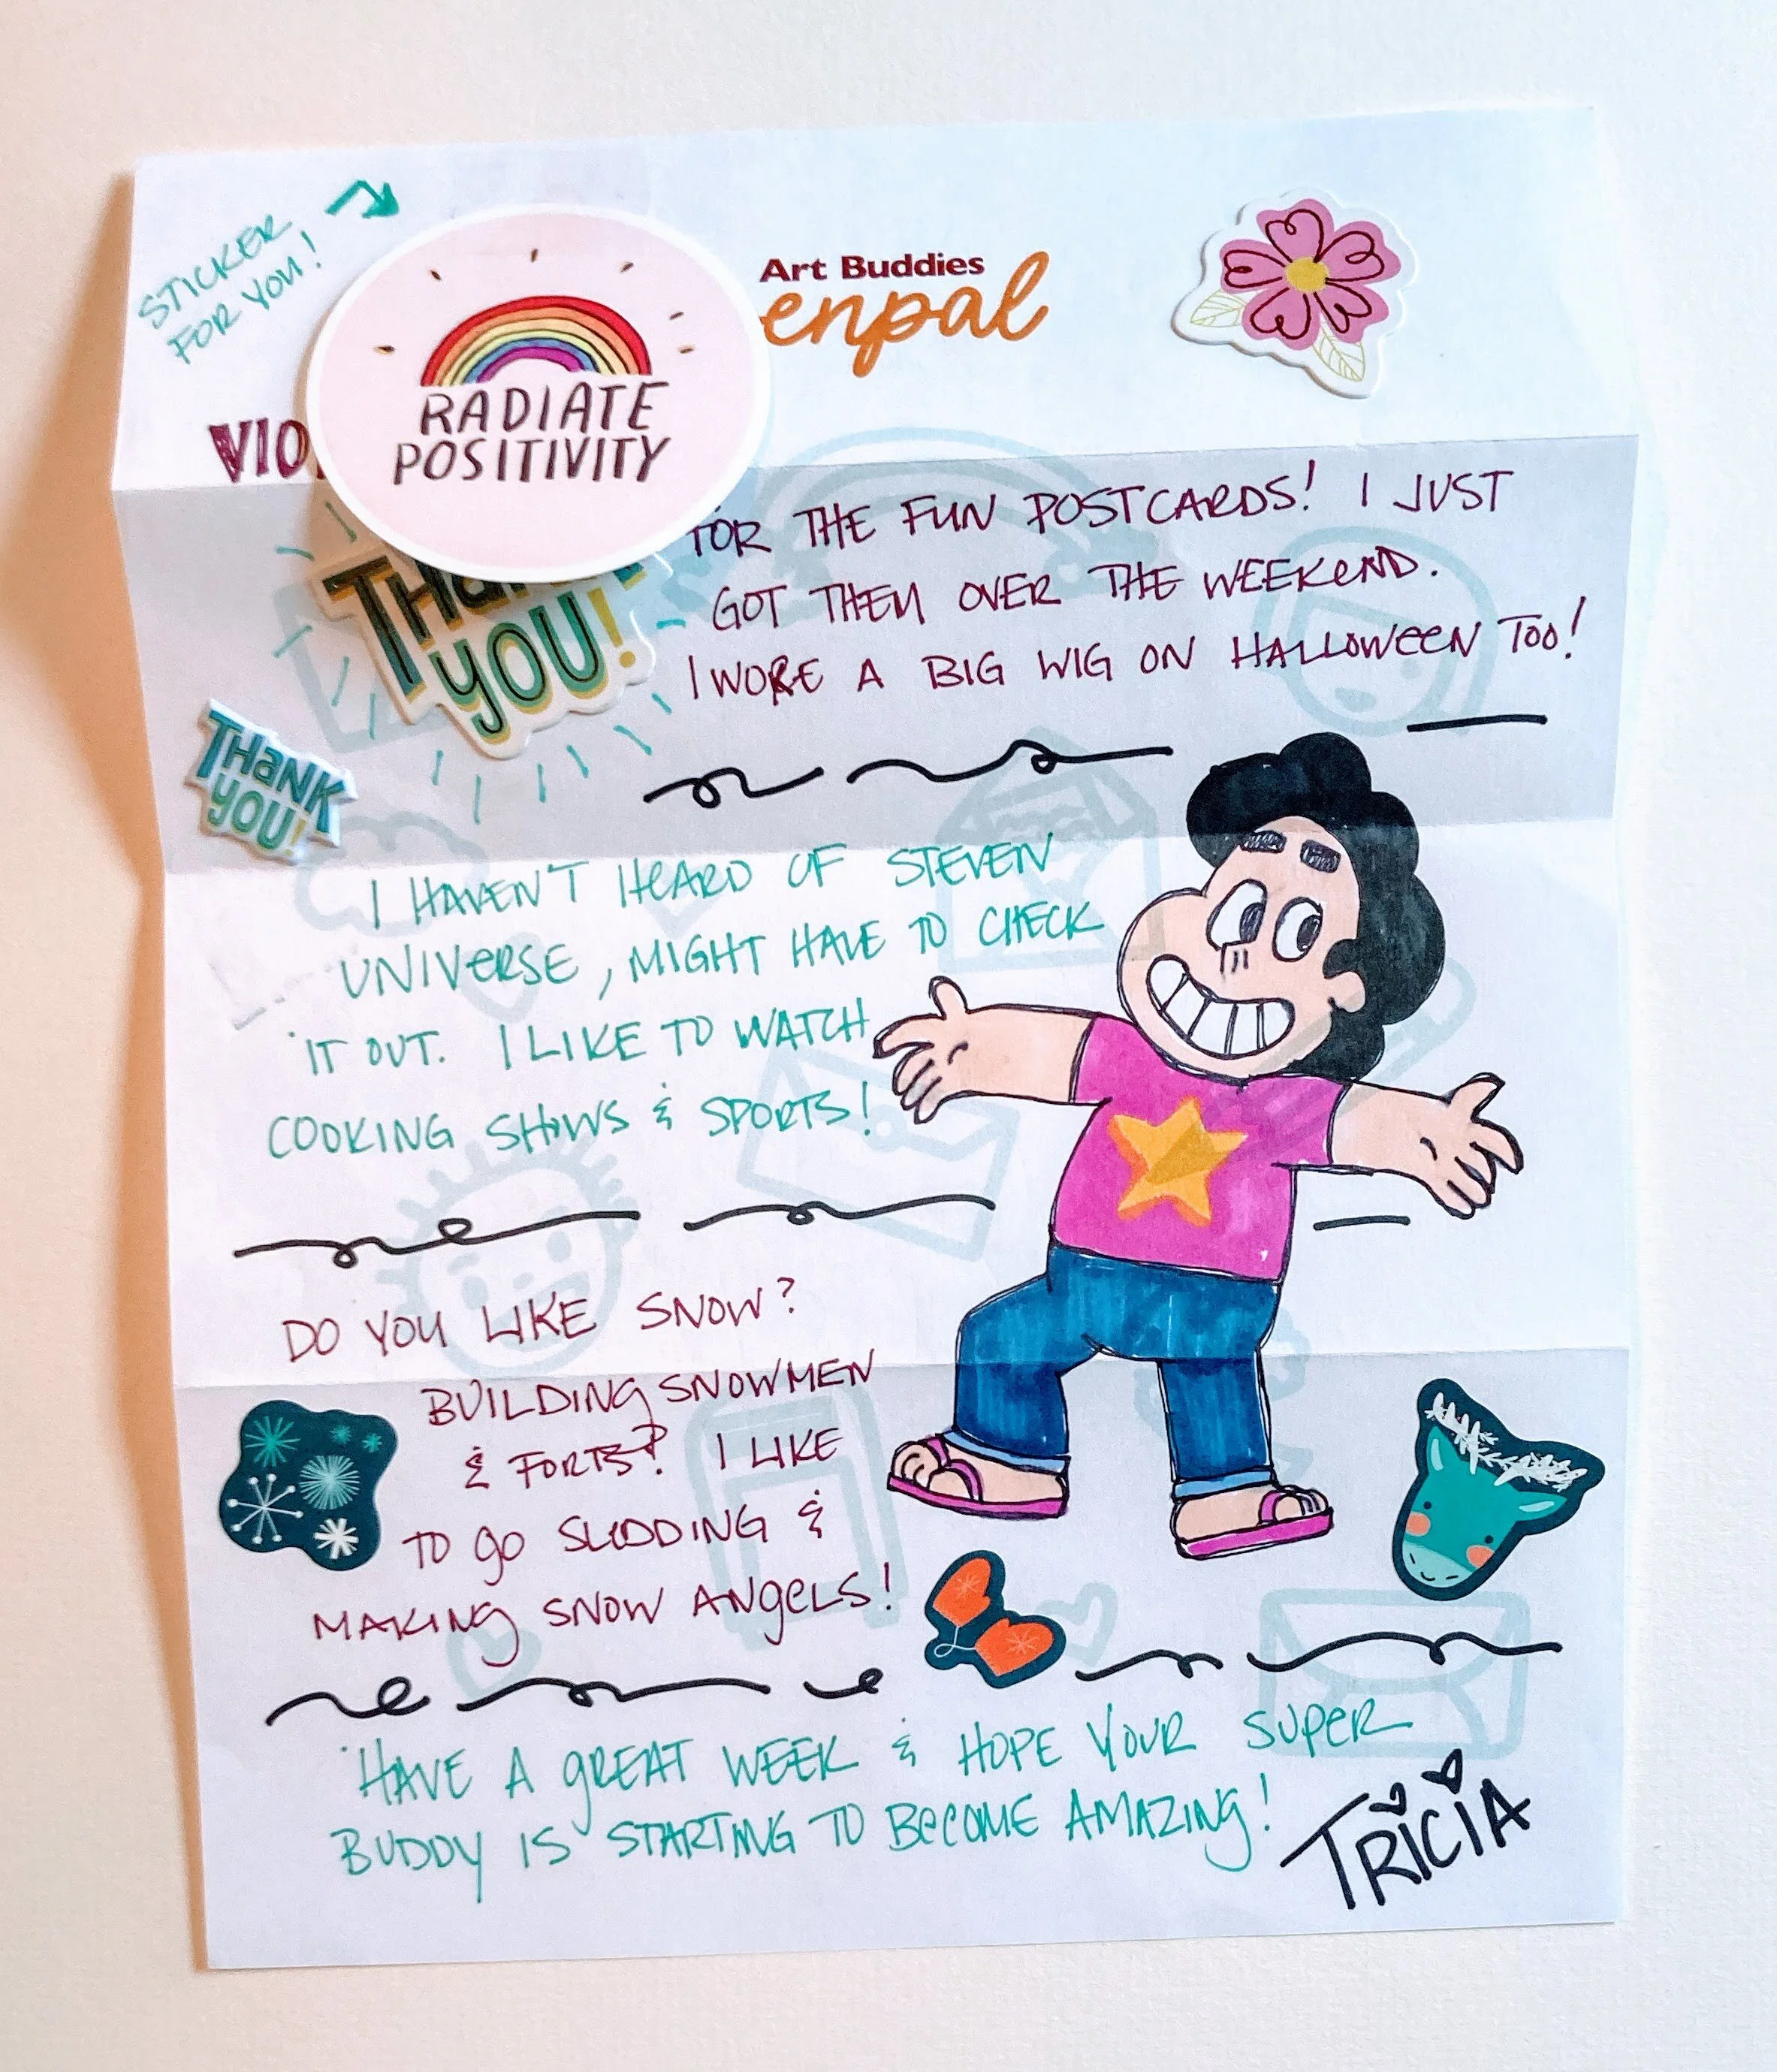 STICKER
FOR YOU!
RADIATE
POSITIVITY
Art Buddies
enpal
VIO
THANK
YOU!
FOR THE FUN POSTCARDS! I JUST
GOT THEM OVER THE WEEKEND.
I WORE A BIG WIG ON HALLOWEEN TOO!
THANK
YOU!
I HAVEN'T HEARD OF STEVEN
UNIVERSE, MIGHT HAVE TO CHECK
IT OUT. I LIKE TO WATCH
COOKING SHOWS & SPORTS!
DO YOU LIKE SNOW?
BUILDING SNOWMEN
& FORTS? I LIKE
TO GO SLEDDING &
MAKING SNOW ANGELS!
HAVE A GREAT WEEK & HOPE YOUR SUPER
BUDDY IS STARTING TO BECOME AMAZING!
TRICIA